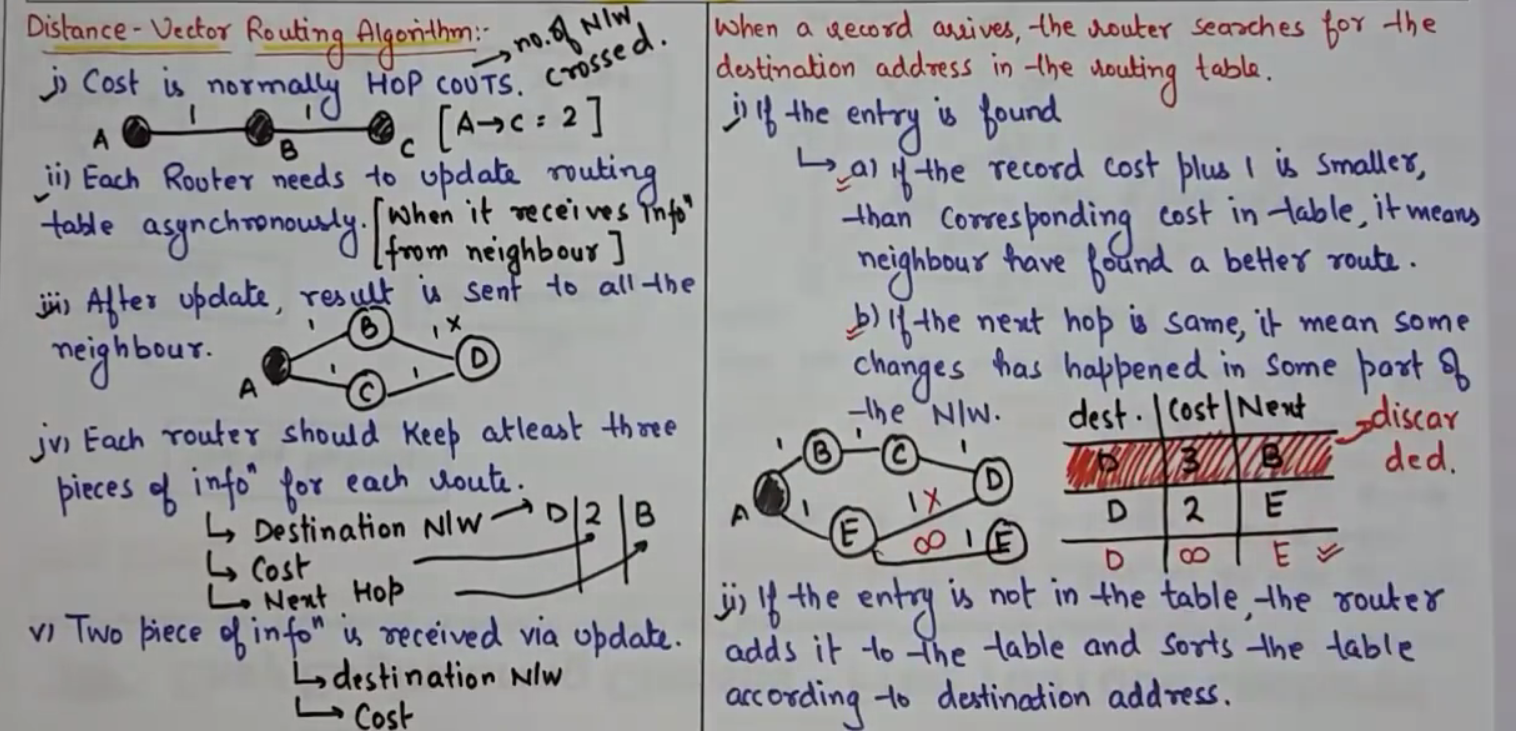 Distance-Vector Routing Algorithm:-
→ no. of N/W
crossed.
i) Cost is normally HOP COUTS.
A 1 B 1 C [A→C = 2]
ii) Each Router needs to update routing
table asynchronously. [When it receives infoⁿ
from neighbour]
iii) After update, result is sent to all the
neighbour.
A 1 B 1 x D
1 C 1
iv) Each router should keep atleast three
pieces of infoⁿ for each route.
↳ Destination N/W → D | 2 | B
↳ Cost
↳ Next Hop
v) Two piece of infoⁿ is received via update.
↳ destination N/W
↳ Cost
When a record arrives, the router searches for the
destination address in the routing table.
i) If the entry is found
↳ a) if the record cost plus 1 is smaller,
than corresponding cost in table, it means
neighbour have found a better route.
b) If the next hop is same, it mean some
changes has happened in some part of
the N/W.
dest. | Cost | Next
D | 3 | B → discar
ded.
D | 2 | E
D | ∞ | E
A 1 B 1 C 1 D
1 E 1 x
∞ 1 E
ii) If the entry is not in the table, the router
adds it to the table and sorts the table
according to destination address.